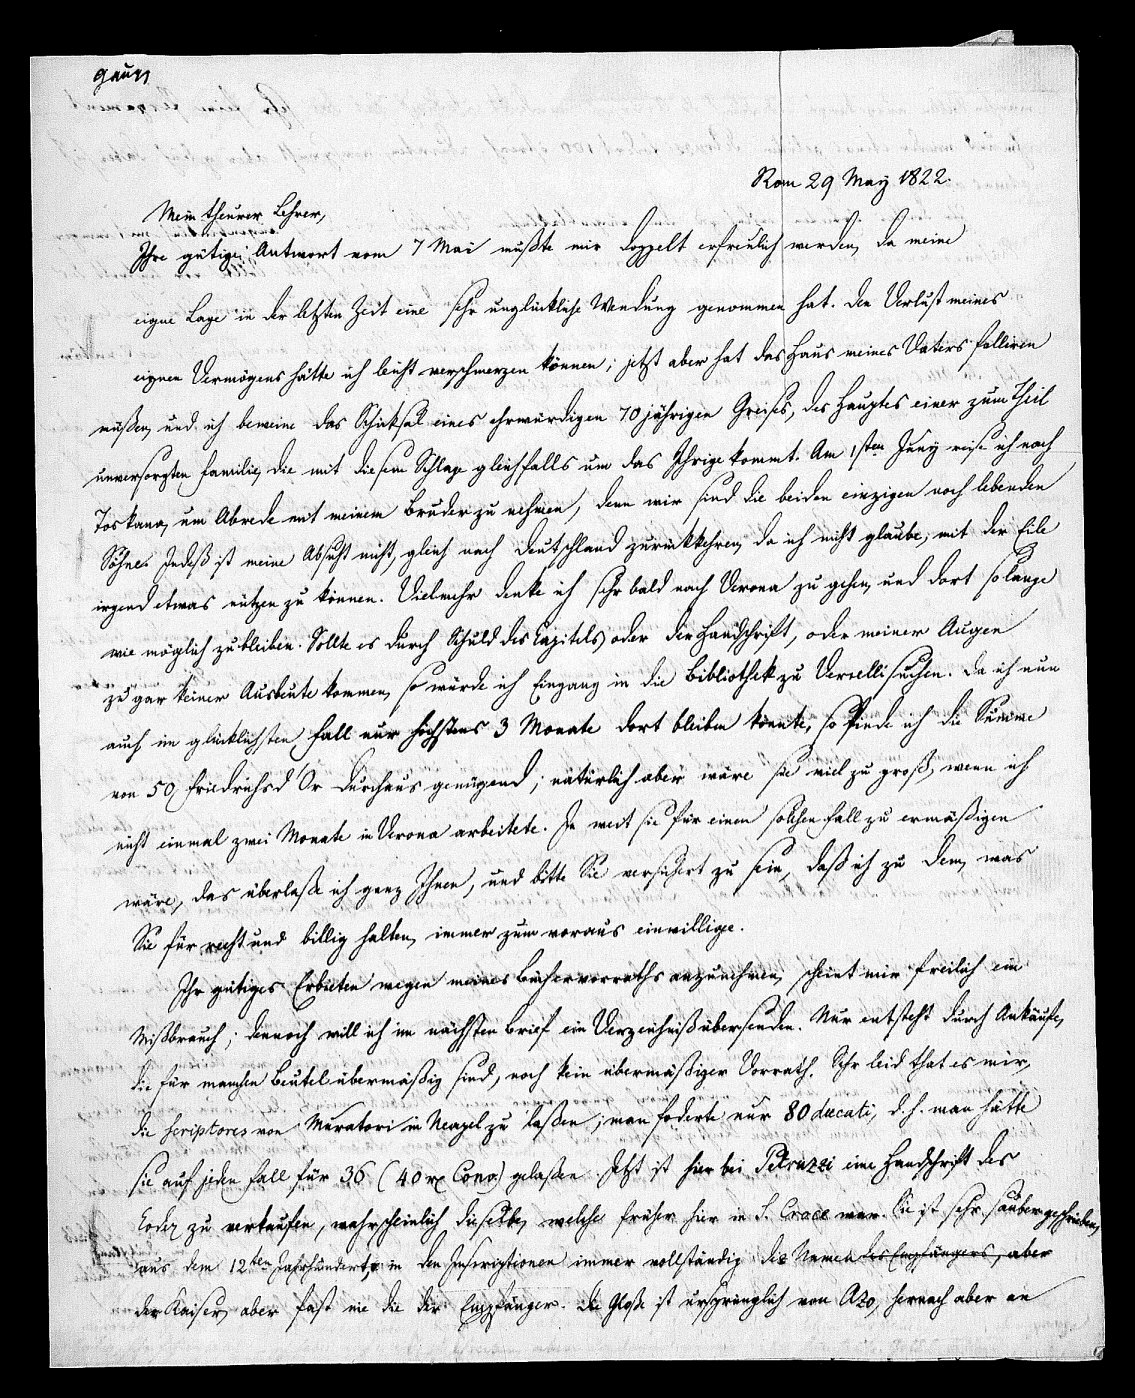 Rom 29 May 1822.
Mein theurer Lehrer,
Ihre gütige Antwort vom 7 Mai mußte mir doppelt erfreulich werden, da meine
eigne Lage in der letzten Zeit eine sehr unglückliche Wendung genommen hat. Den Verlust meines
eignen Vermögens hätte ich leicht verschmerzen können; jetzt aber hat das Haus meines Vaters falliren
müßen, und ich beweine das Schicksal eines ehrwürdigen 70jährigen Greises, des Hauptes einer zum Theil
unversorgten Familie, die mit diesem Schlage gleichfalls um das Ihrige kommt. Am 1sten Juny reise ich nach
Toskana, um Abrede mit meinem Bruder zu nehmen, denn wir sind die beiden einzigen noch lebenden
Söhne. Indeß ist meine Absicht nicht, gleich nach Deutschland zurückkehren, da ich nicht glaube, mit der Eile
irgend etwas nützen zu können. Vielmehr denke ich sehr bald nach Verona zu gehen, und dort so lange
wie möglich zu bleiben. Sollte es durch Schuld des Capitels, oder der Handschrift, oder meiner Augen
zu gar keiner Ausbeute kommen, so würde ich Eingang in die Bibliothek zu Vercelli suchen. Da ich nun
auch im glücklichsten Fall nur höchstens 3 Monate dort bleiben könnte, so finde ich die Summe
von 50 Friedrichsd'Or durchaus genügend; natürlich aber wäre sie viel zu groß, wenn ich
nicht einmal zwei Monate in Verona arbeitete. In weit sie für einen solchen Fall zu ermäßigen
wäre, das überlaße ich ganz Ihnen, und bitte Sie versichert zu sein, daß ich zu dem, was
Sie für recht und billig halten, immer zum voraus einwillige.
Ihr gütiges Erbieten wegen meines Büchervorraths anzunehmen, scheint mir freilich ein
Mißbrauch; dennoch will ich im nächsten Brief ein Verzeichniß übersenden. Nur entsteht durch Ankäufe,
die für manchen Beutel übermäßig sind, noch kein übermäßiger Vorrath. Sehr leid that es mir,
die scriptores von Muratori in Neapel zu laßen; man foderte nur 80 ducati, d.h. man hätte
sie auf jeden Fall für 36 (40 Conv.) gelaßen. Jetzt ist hier bei Petruzzi eine Handschrift des
Codex zu verkaufen, wahrscheinlich dieselbe, welche früher hier in S. Croce war. Sie ist sehr sauber geschrieben,
aus dem 12ten Jahrhundert, in den Inscriptionen immer vollständig die Namen des Empfängers, aber
der Kaiser, aber fast nie die der Empfänger. Die Gloße ist ursprünglich von Azo, hernach aber an